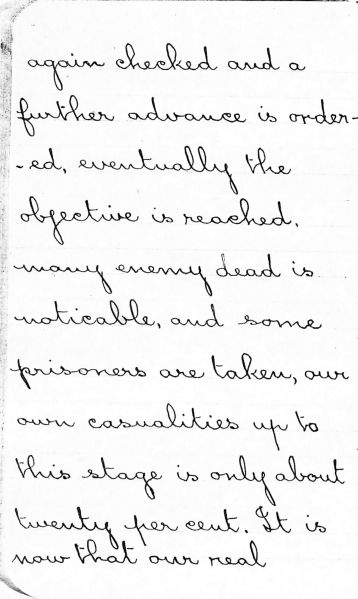 again checked and a
further advance is order-
-ed, eventually the
objective is reached.
many enemy dead is
noticable, and some
prisoners are taken, our
own casualities up to
this stage is only about
twenty per cent. It is
now that our real